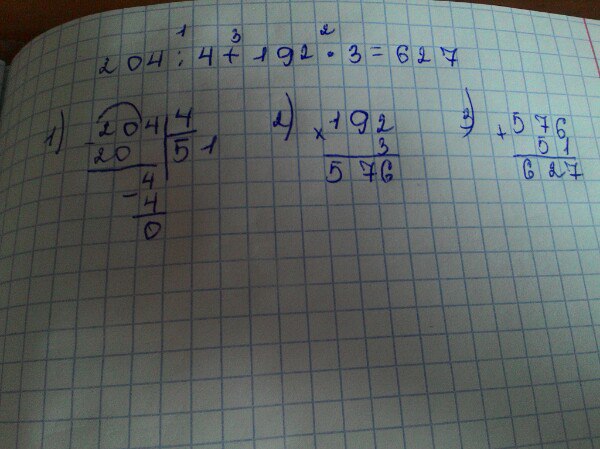 1 3 2
204 : 4 + 192 · 3 = 627
1) 204 | 4 2) × 192 3) + 576
- 20 | 51 3 51
- 4 576 627
4
0